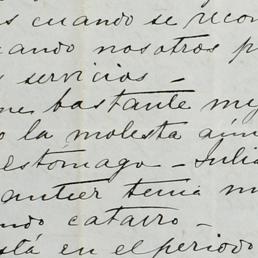 s cuando se recon
uando nosotros p
s servicios _
ne bastante mej
o la molesta aún
estómago _ Julia
antier tenia m
ndo catarro _
stá en el periodo